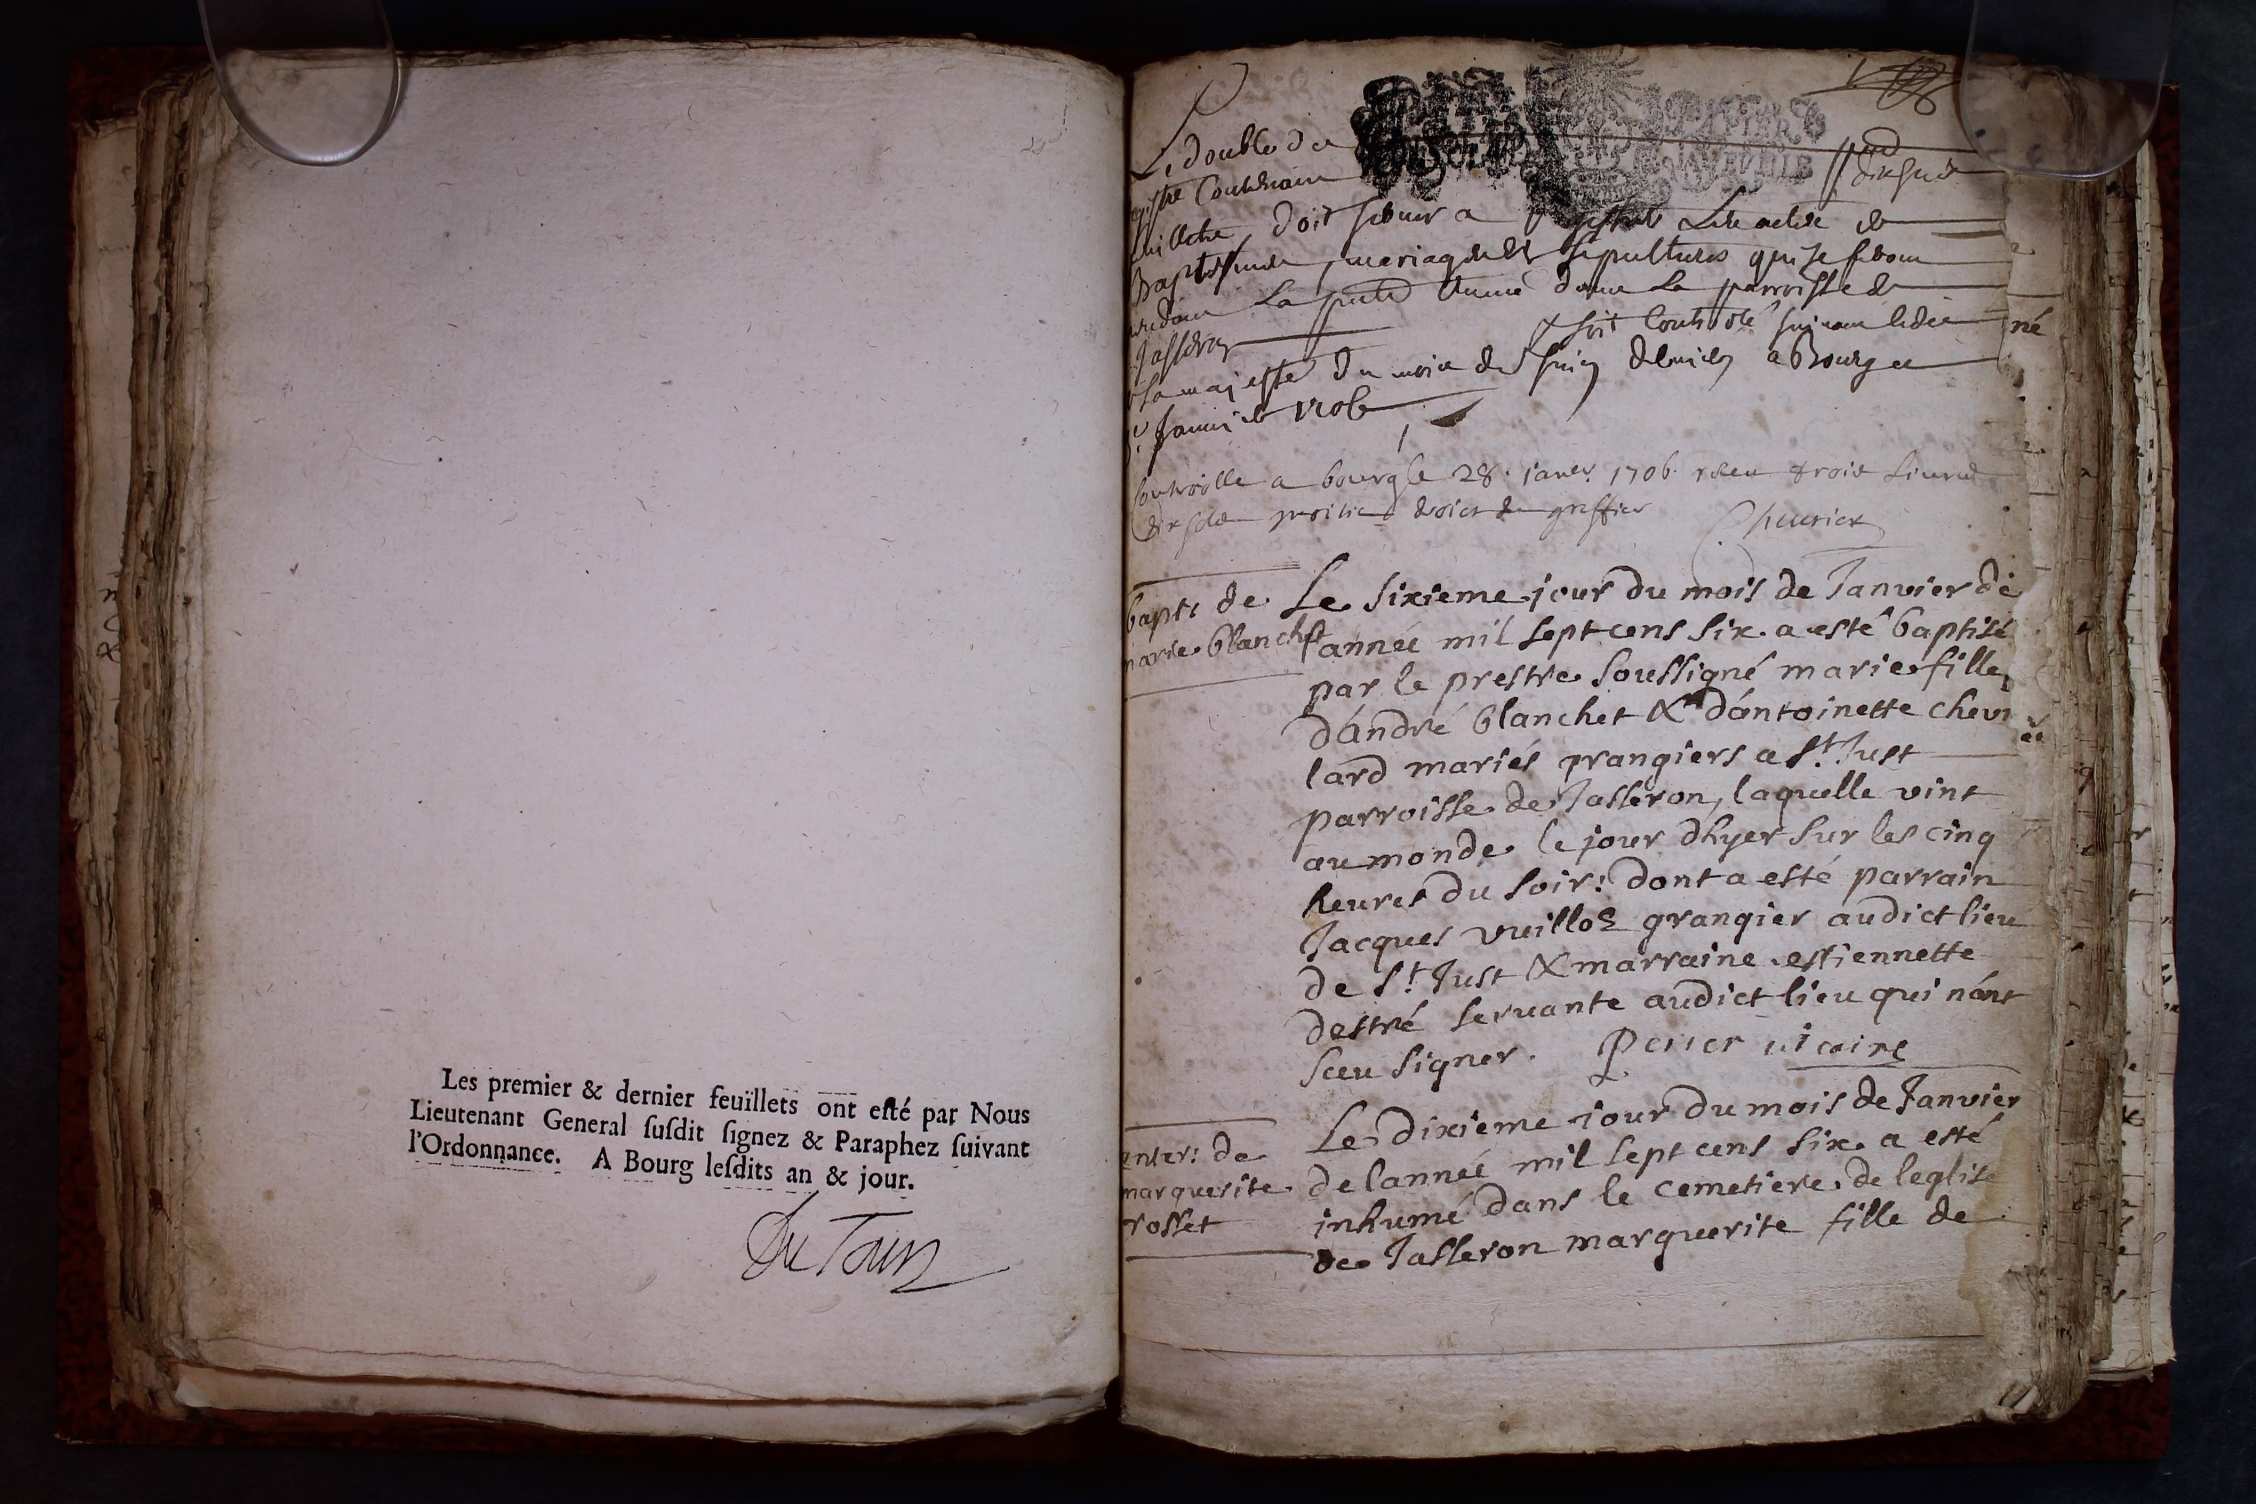 Les premier & dernier feuillets ont esté par Nous
Lieutenant General ſuſdit ſignez & Paraphez ſuivant
l'Ordonnance. A Bourg leſdits an & jour.
Le double de
doit servir a
mariages et sepultures qui se feront
La pnte année dans La parroisse de
Jasseron soit Controlé suivant
sa majesté du mois de Juin dernier a Bourg ce
Janvier 1706
Controlle a bourg le 28. janvr. 1706 receu trois Livres
dix sols greffier
bapt: de
marie blanchet
Le sixieme jour du mois de Janvier de
lannée mil sept cens six a esté baptisé
par le prestre soussigné marie fille
dándré blanchet & dántoinette chevi
lard mariés grangiers a St. Just
parroisse de Jasseron, laquelle vint
au monde le jour dhyer sur les cinq
heures du soir: dont a esté parrain
Jacques vuilloz grangier audict lieu
de St. Just & marraine estiennette
destré servante audict lieu qui nónt
sceu signer. Perier vicaire
enter: de
marguerite
rosset
Le dixieme jour du mois de Janvier
de lannée mil sept cens six a esté
inhumé dans le cemetiere de leglise
de Jasseron marguerite fille de